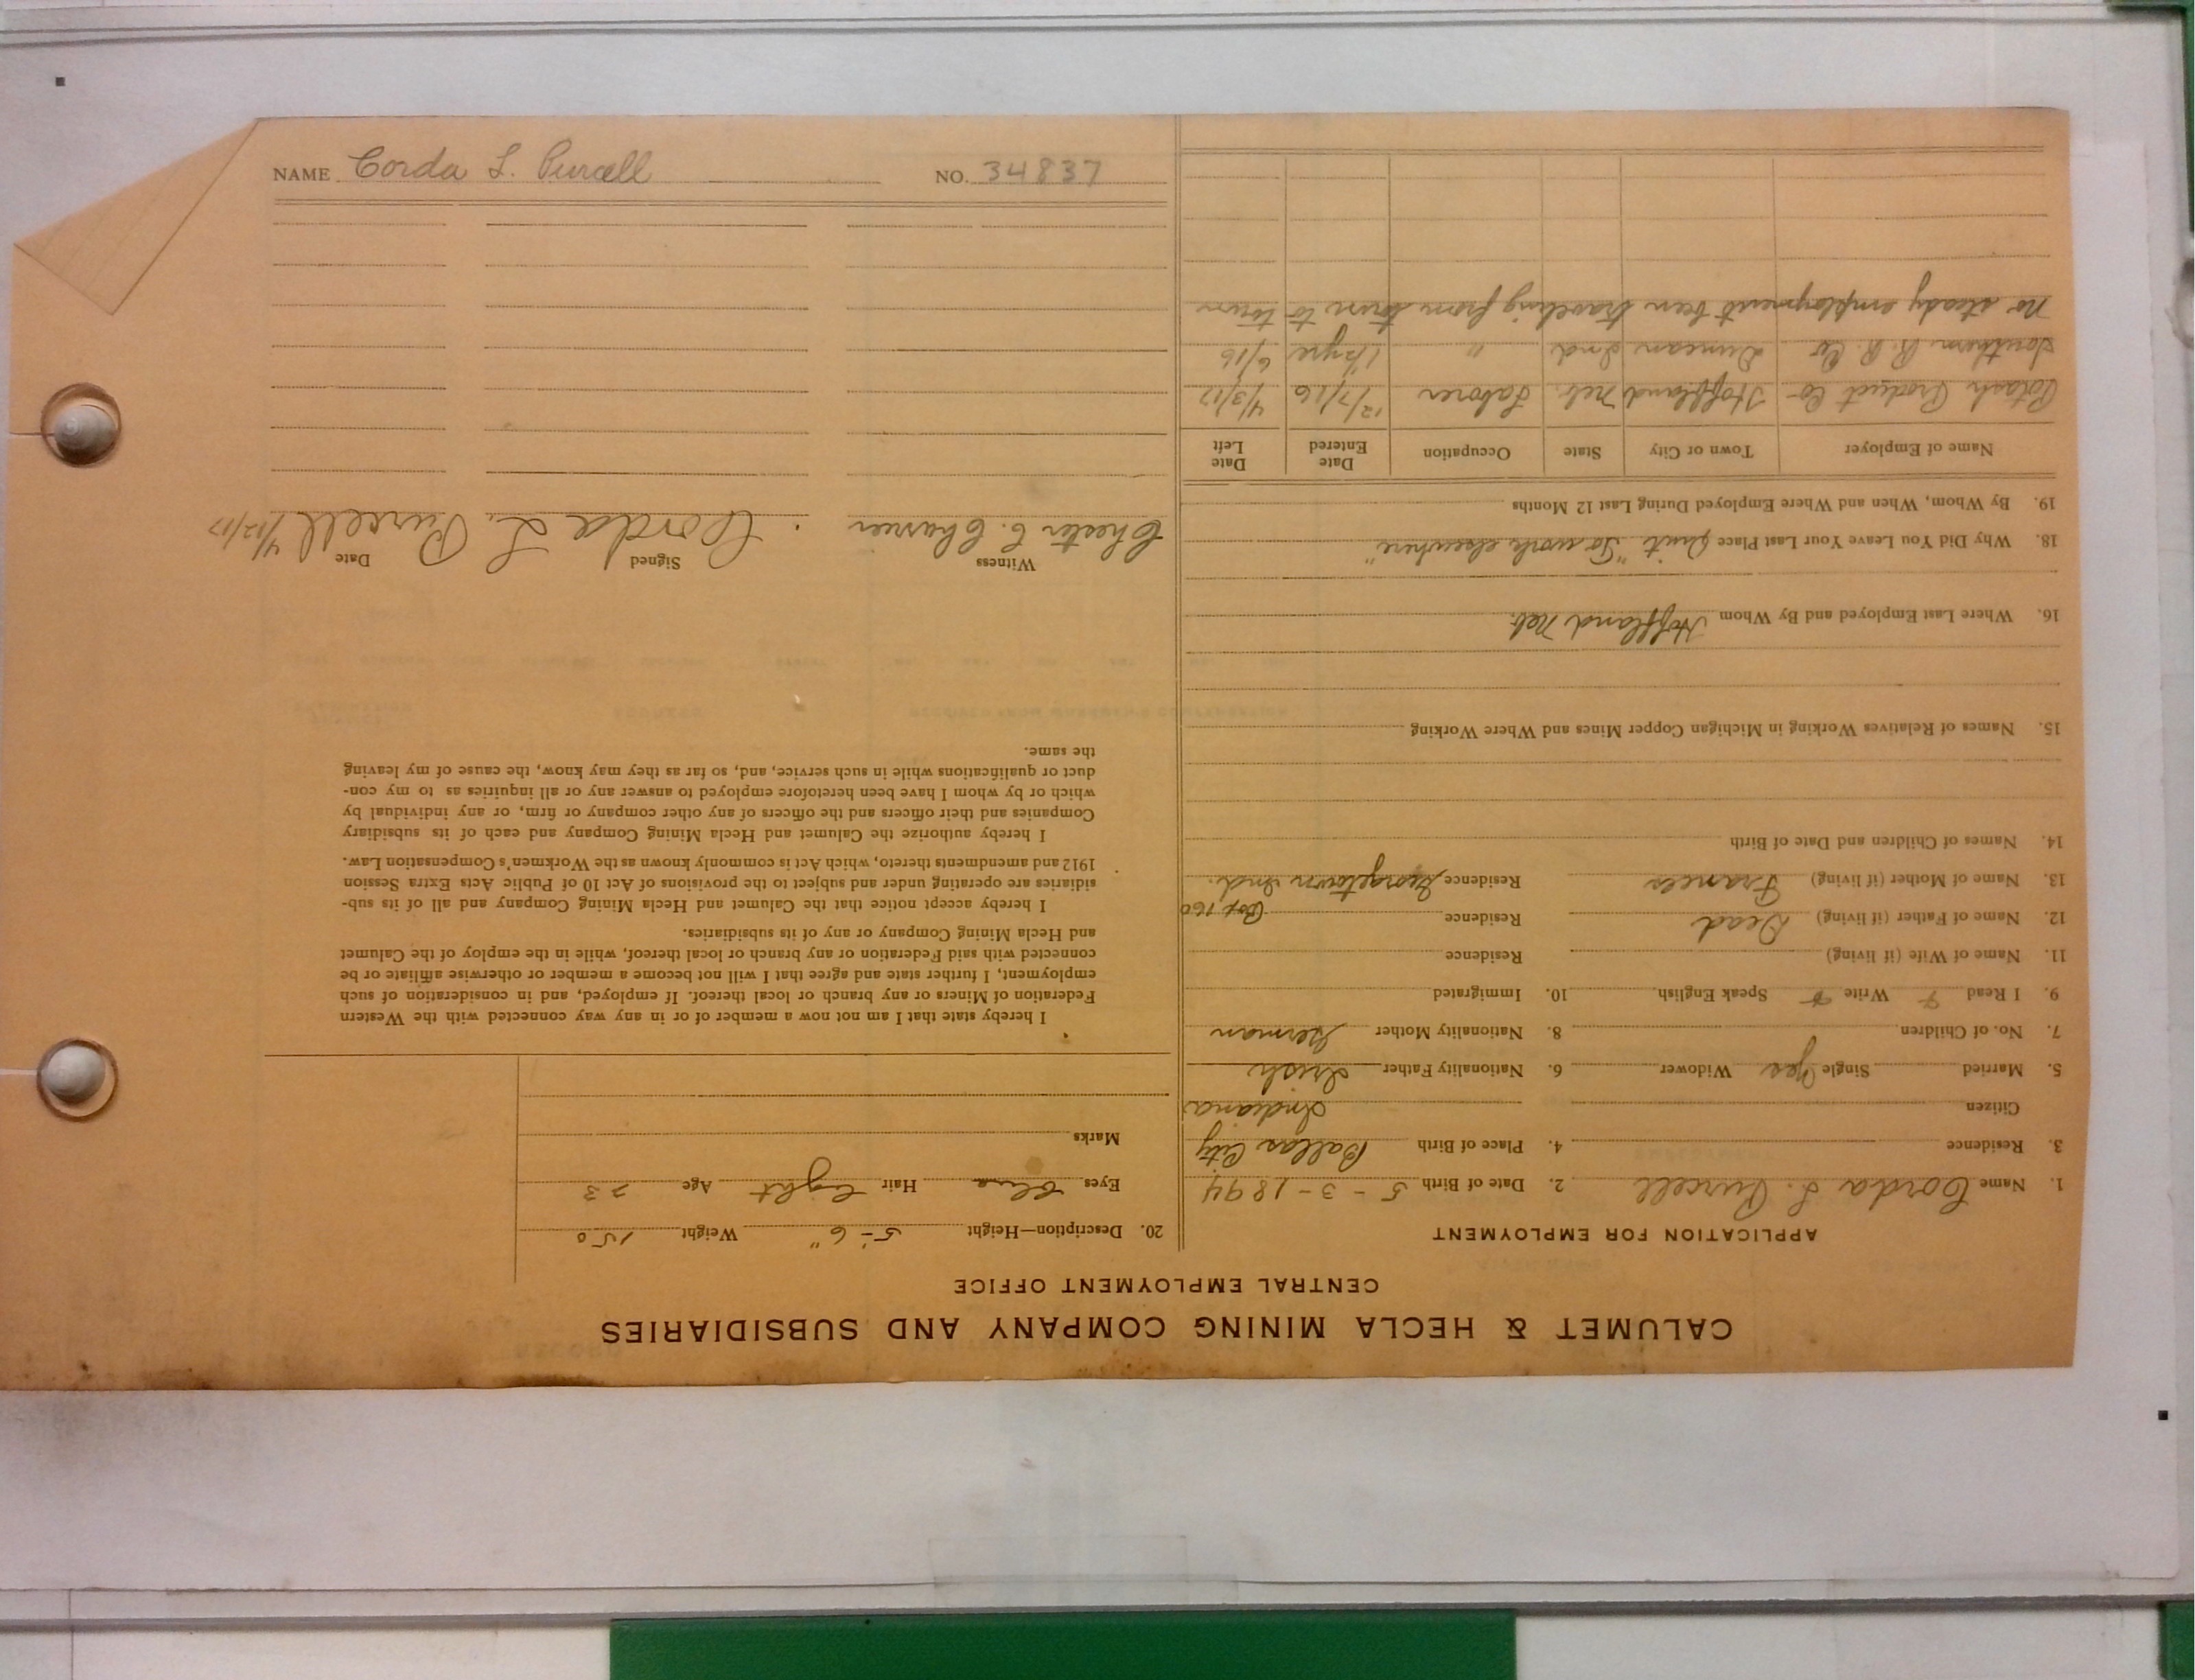 CALUMET & HECLA MINING COMPANY AND SUBSIDIARIES
CENTRAL EMPLOYMENT OFFICE
APPLICATION FOR EMPLOYMENT
1. Name Corda L. Purcell 2. Date of Birth 5-3-1894
3. Residence 4. Place of Birth Ballas City
Citizen Indiana
5. Married Single Yes Widower 6. Nationality Father Irish
7. No. of Children 8. Nationality Mother German
9. I Read Write Speak English 10. Immigrated
11. Name of Wife (if living) Residence
12. Name of Father (if living) Dead Residence Box 160
13. Name of Mother (if living) Frances Residence Georgetown Ind.
14. Names of Children and Date of Birth
15. Names of Relatives Working in Michigan Copper Mines and Where Working
16. Where Last Employed and By Whom Hoffland Neb.
18. Why Did You Leave Your Last Place Quit "To work elsewhere"
19. By Whom, When and Where Employed During Last 12 Months
Name of Employer Town or City State Occupation Date Entered Date Left
Potash Product Co Hoffland Neb. Laborer 12/7/16 4/3/17
Southern R. R. Co Duncan Ind " 1½yrs 6/16
No steady employment been traveling from town to town
20. Description—Height 5'-6" Weight 150
Eyes Blue Hair Light Age 23
Marks
I hereby state that I am not now a member of or in any way connected with the Western
Federation of Miners or any branch or local thereof. If employed, and in consideration of such
employment, I further state and agree that I will not become a member or otherwise affiliate or be
connected with said Federation or any branch or local thereof, while in the employ of the Calumet
and Hecla Mining Company or any of its subsidiaries.
I hereby accept notice that the Calumet and Hecla Mining Company and all of its sub-
sidiaries are operating under and subject to the provisions of Act 10 of Public Acts Extra Session
1912 and amendments thereto, which Act is commonly known as the Workmen's Compensation Law.
I hereby authorize the Calumet and Hecla Mining Company and each of its subsidiary
Companies and their officers and the officers of any other company or firm, or any individual by
which or by whom I have been heretofore employed to answer any or all inquiries as to my con-
duct or qualifications while in such service, and, so far as they may know, the cause of my leaving
the same.
Witness Signed Date
Chester C. Corda L. Purcell 4/12/17
NAME Corda L. Purcell NO. 34837